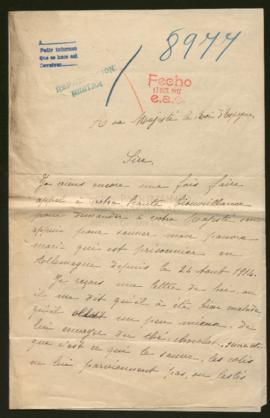 A
Pedir informes
Que se hace así
Devolver
8977
Fecho
e.a.c.
A sa Majesté le Roi d'Espagne
Sire,
Je viens encore une fois faire
appel à votre haute bienveillance
pour demander à votre Majesté son
appui pour sauver mon pauvre
mari qui est prisonnier en
Allemagne depuis le 24 août 1914.
Je reçois une lettre de lui, où
il me dit qu'il a été bien malade
qu'il allait un peu mieux, de
lui envoyer du thé, chocolat, sucre
que c'est ce qui le sauve, les colis
ne lui parviennent pas, ou restés